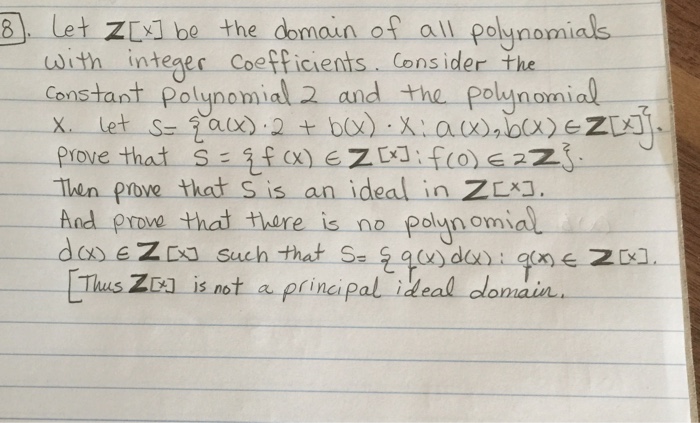 8). Let Z[x] be the domain of all polynomials
with integer coefficients. Consider the
constant polynomial 2 and the polynomial
x. Let S= {a(x)·2 + b(x)·x: a(x), b(x) ∈ Z[x]}.
prove that S = {f(x) ∈ Z[x]: f(0) ∈ 2Z}.
Then prove that S is an ideal in Z[x].
And prove that there is no polynomial
d(x) ∈ Z[x] such that S= {q(x)d(x): q(x) ∈ Z[x].
[Thus Z[x] is not a principal ideal domain.